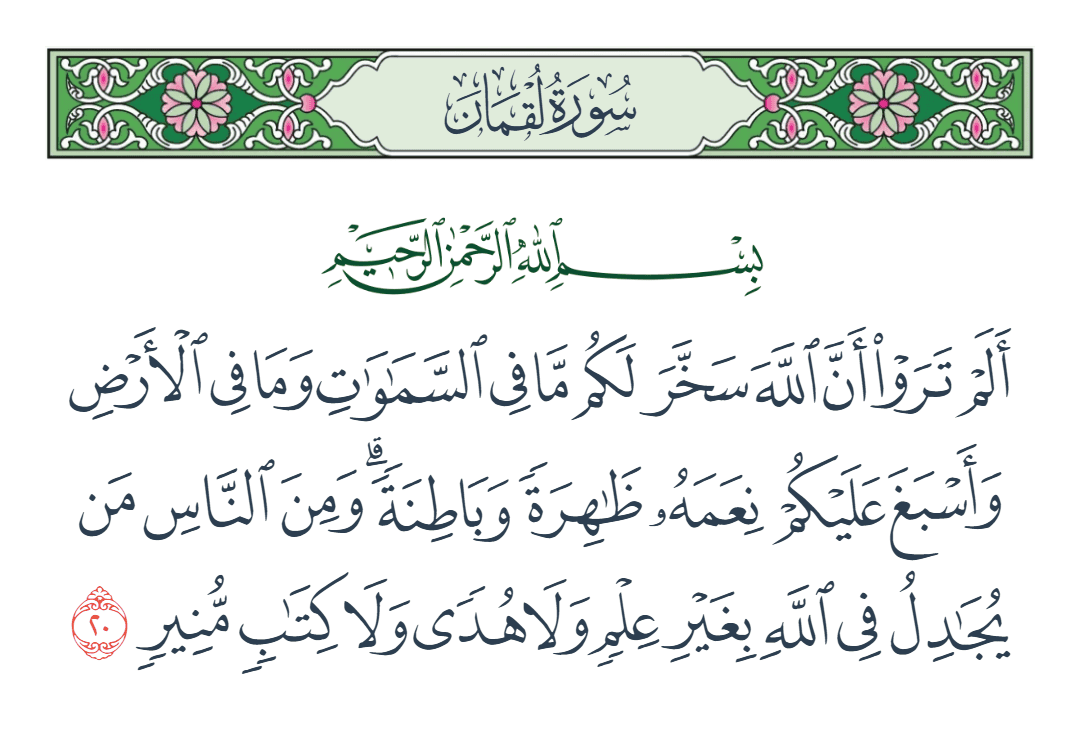 سُورَةُ لُقْمَانَ
بِسْمِ ٱللَّهِ ٱلرَّحْمَٰنِ ٱلرَّحِيمِ
أَلَمْ تَرَوْا۟ أَنَّ ٱللَّهَ سَخَّرَ لَكُم مَّا فِى ٱلسَّمَٰوَٰتِ وَمَا فِى ٱلْأَرْضِ
وَأَسْبَغَ عَلَيْكُمْ نِعَمَهُۥ ظَٰهِرَةً وَبَاطِنَةً ۗ وَمِنَ ٱلنَّاسِ مَن
يُجَٰدِلُ فِى ٱللَّهِ بِغَيْرِ عِلْمٍ وَلَا هُدًى وَلَا كِتَٰبٍ مُّنِيرٍ ٢٠